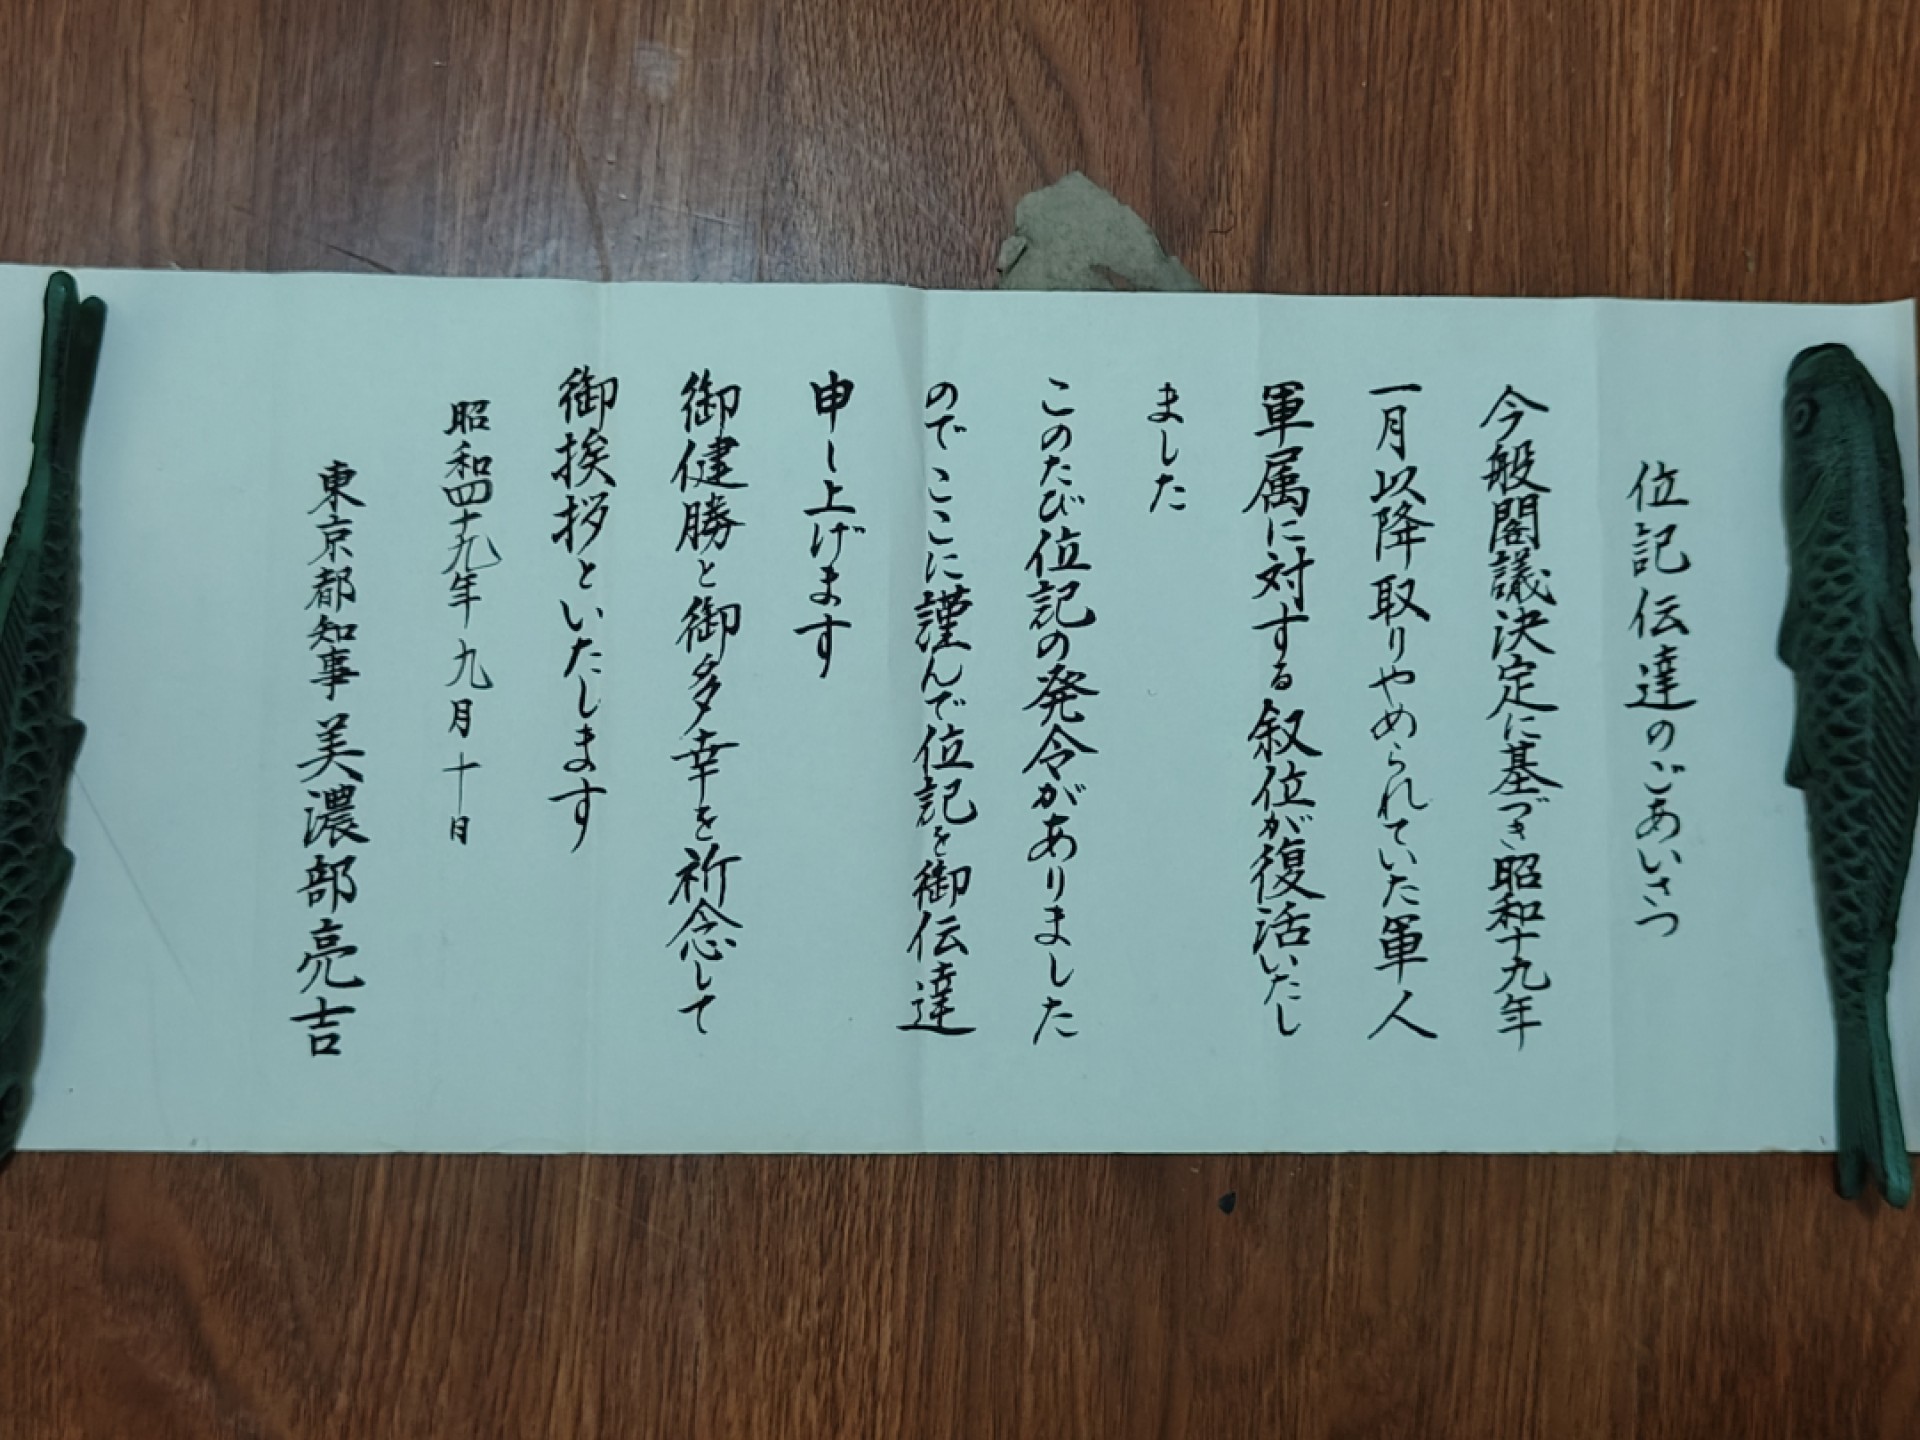 位記伝達のごあいさつ
今般閣議決定に基づき昭和十九年
一月以降取りやめられていた軍人
軍属に対する叙位が復活いたし
ました
このたび位記の発令がありました
のでここに謹んで位記を御伝達
申し上げます
御健勝と御多幸を祈念して
御挨拶といたします
昭和四十九年九月十日
東京都知事美濃部亮吉